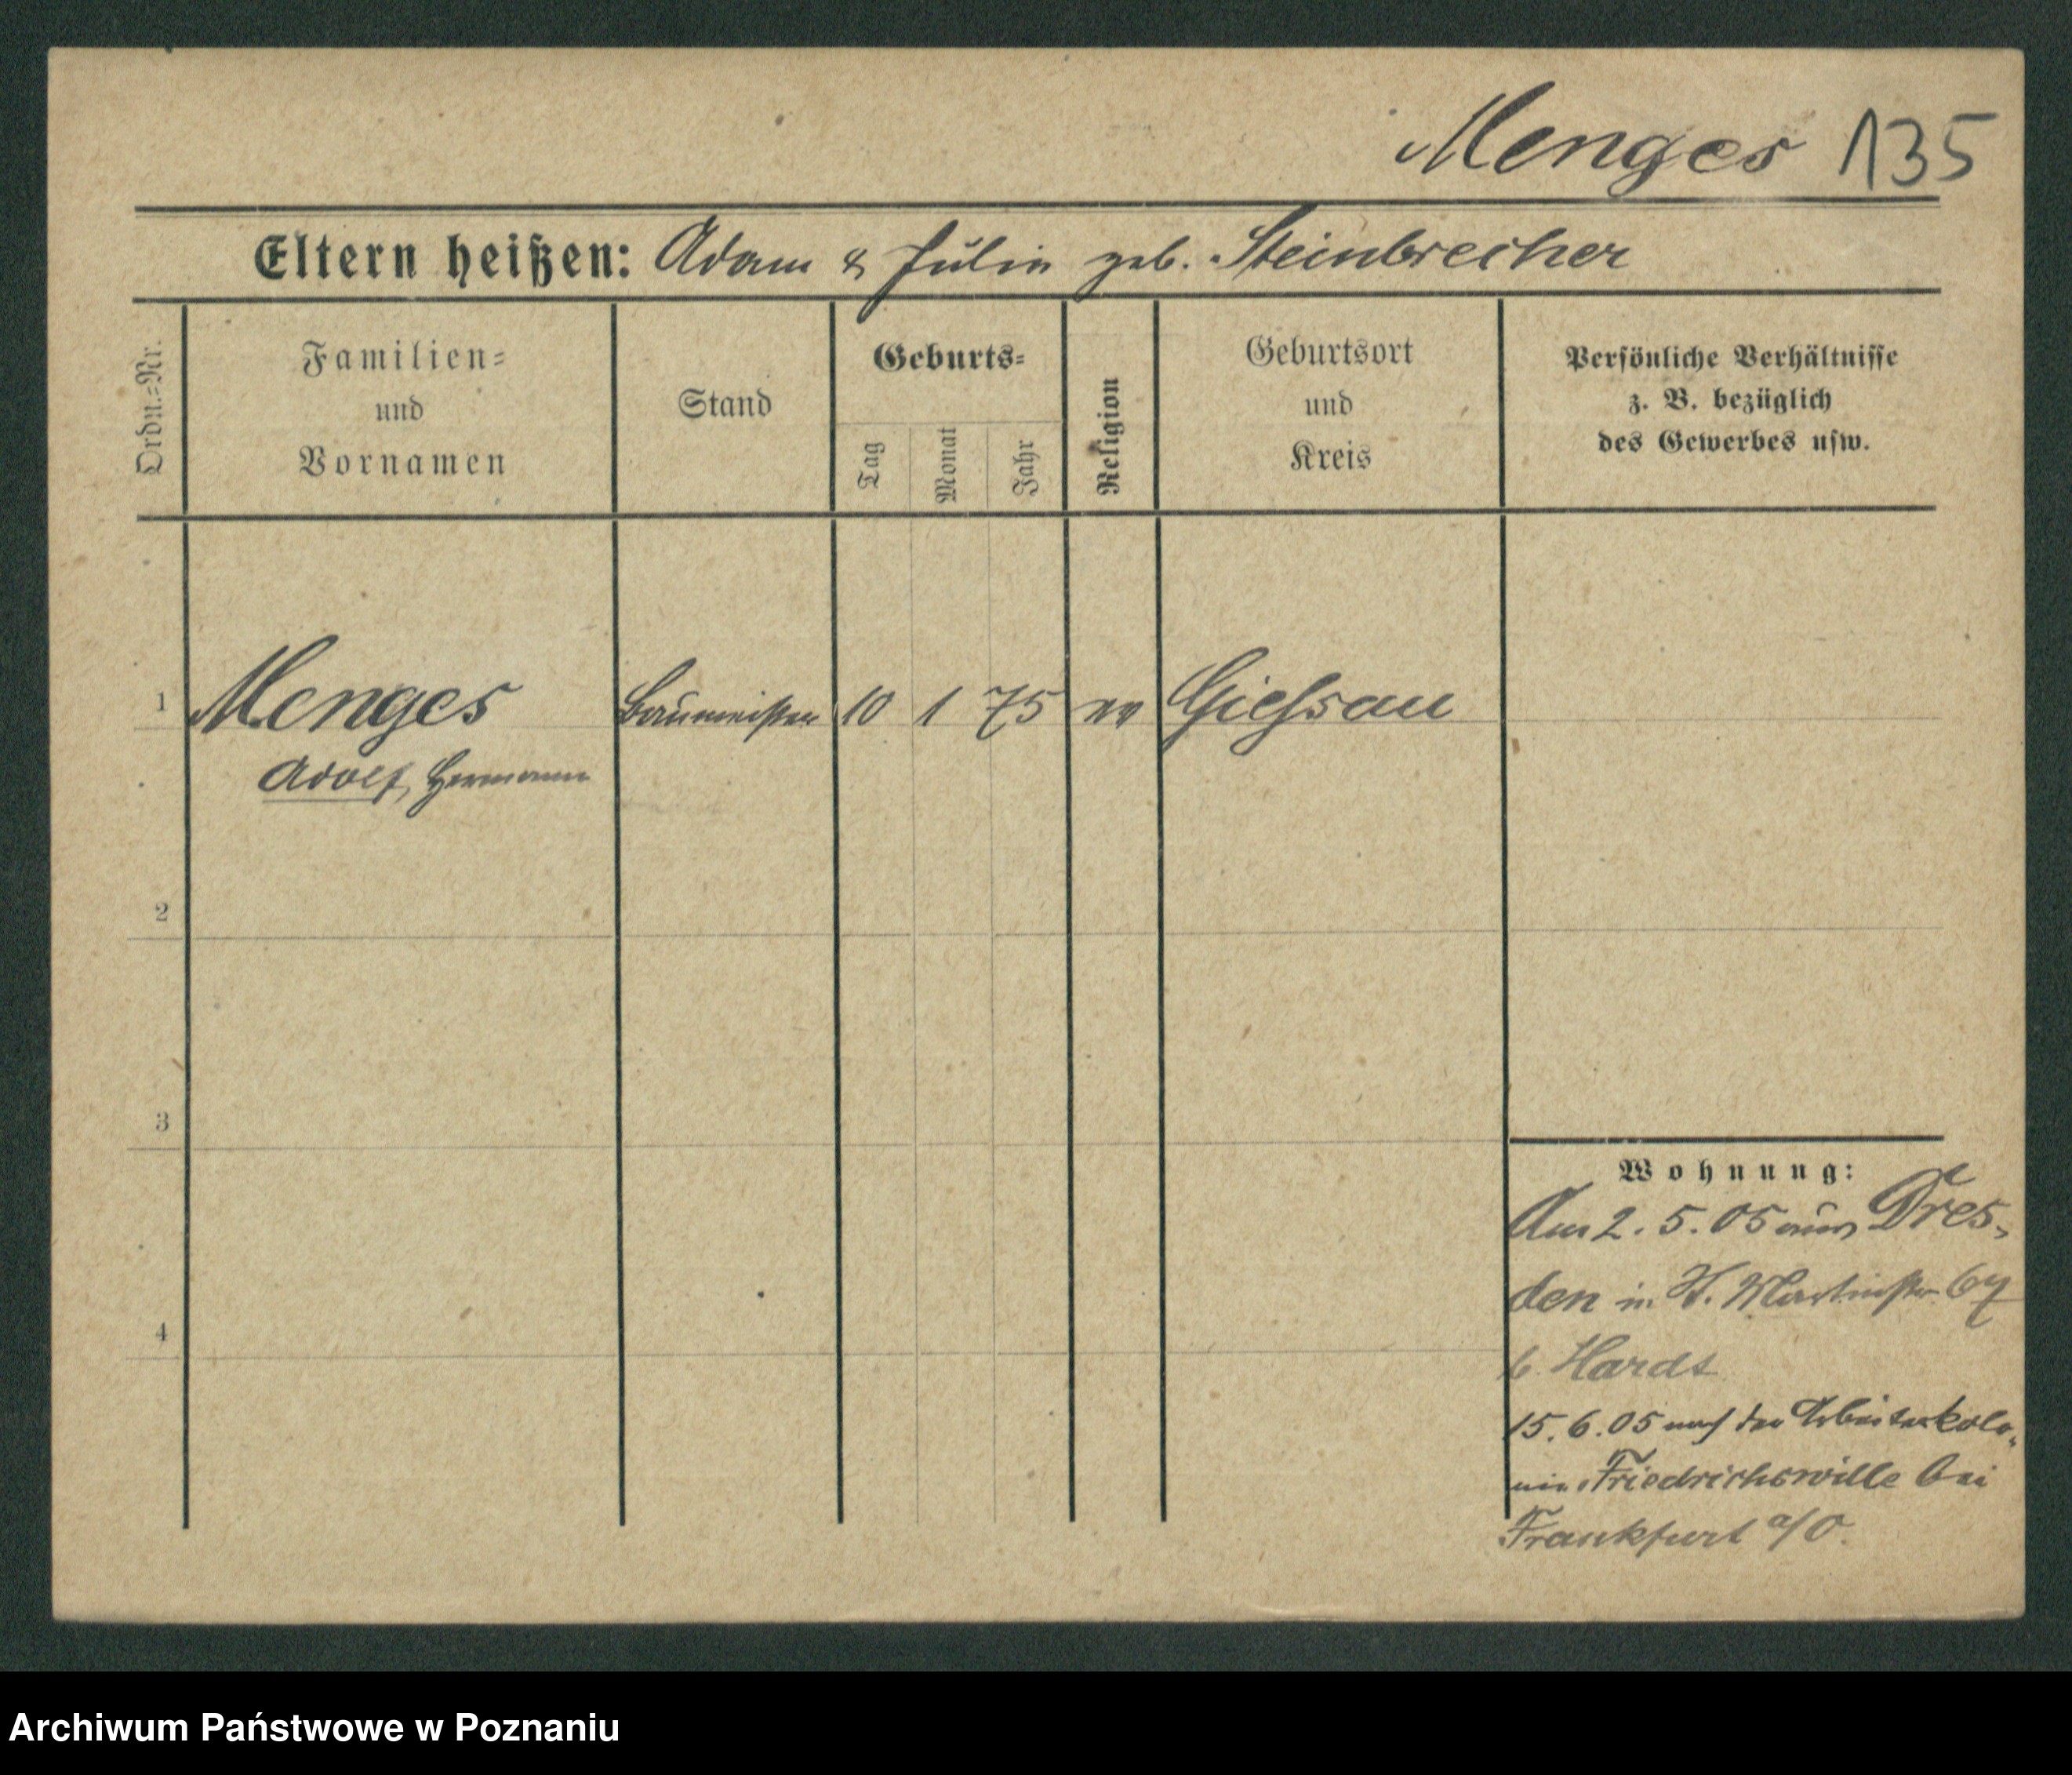 Menges 135
Eltern heißen: Adam & Julie geb. Steinbrecher
Ordn.=Nr.
Familien=
und
Vornamen
Stand
Geburts=
Tag
Monat
Jahr
Religion
Geburtsort
und
Kreis
Persönliche Verhältnisse
z. B. bezüglich
des Gewerbes usw.
1 Menges Baumeister 10 1 75 ev Giessau
Adolf, Hermann
2
3
4
Wohnung:
Am 2. 5. 05 aus Dres-
den in St. Martinstr 67
b. Hardt
15. 6. 05 nach der Arbeiterkolo-
nie Friedrichswille bei
Frankfurt a/O.
Archiwum Państwowe w Poznaniu